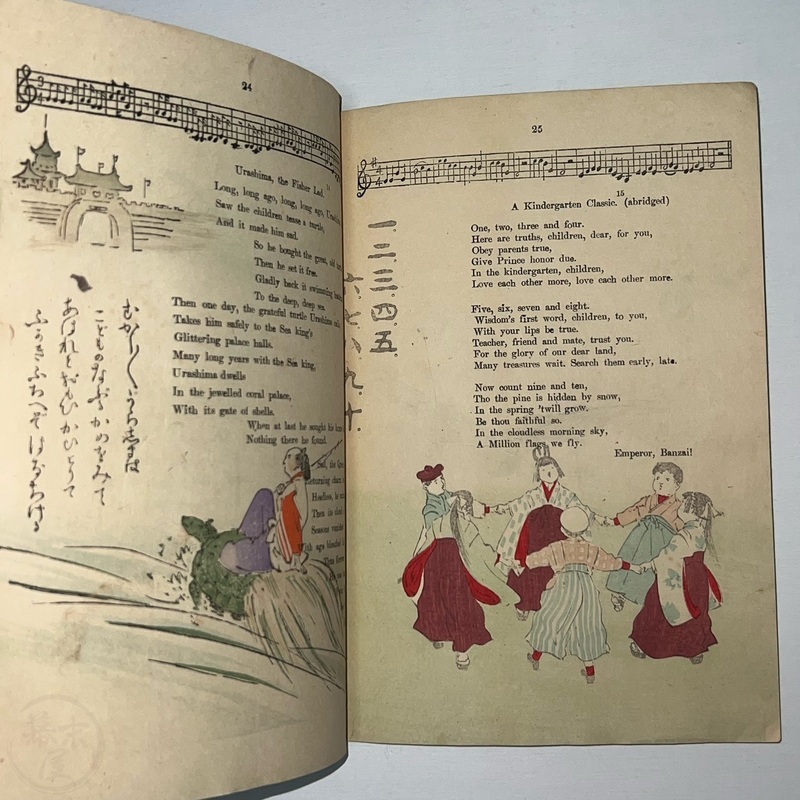 24
Urashima, the Fisher Lad.
Long, long ago, long, long ago,
Saw the children tease a turtle,
And it made him sad.
So he bought the great, old
Then he set it free.
Gladly back it swimming
To the deep, deep sea.
Then one day, the grateful turtle Urashima
Takes him safely to the Sea king's
Glittering palace halls.
Many long years with the Sea king,
Urashima dwells
In the jewelled coral palace,
With its gate of shells.
When at last he sought his
Nothing there he found.
Sad, the
Returning
Headless, he
Then its
Seasons
With age
Thus
むかし〱うらしまは
こどものなぶるかめをみて
あはれとおもひかひとりて
ふかきふちへぞはなちける
25
15
A Kindergarten Classic. (abridged)
One, two, three and four.
Here are truths, children, dear, for you,
Obey parents true,
Give Prince honor due.
In the kindergarten, children,
Love each other more, love each other more.
Five, six, seven and eight.
Wisdom's first word, children, to you,
With your lips be true.
Teacher, friend and mate, trust you.
For the glory of our dear land,
Many treasures wait. Search them early, late.
Now count nine and ten,
Tho the pine is hidden by snow,
In the spring 'twill grow.
Be thou faithful so.
In the cloudless morning sky,
A Million flags we fly.
Emperor, Banzai!
一.二.三.四.五.
六.七.八.九.十
幕末屋